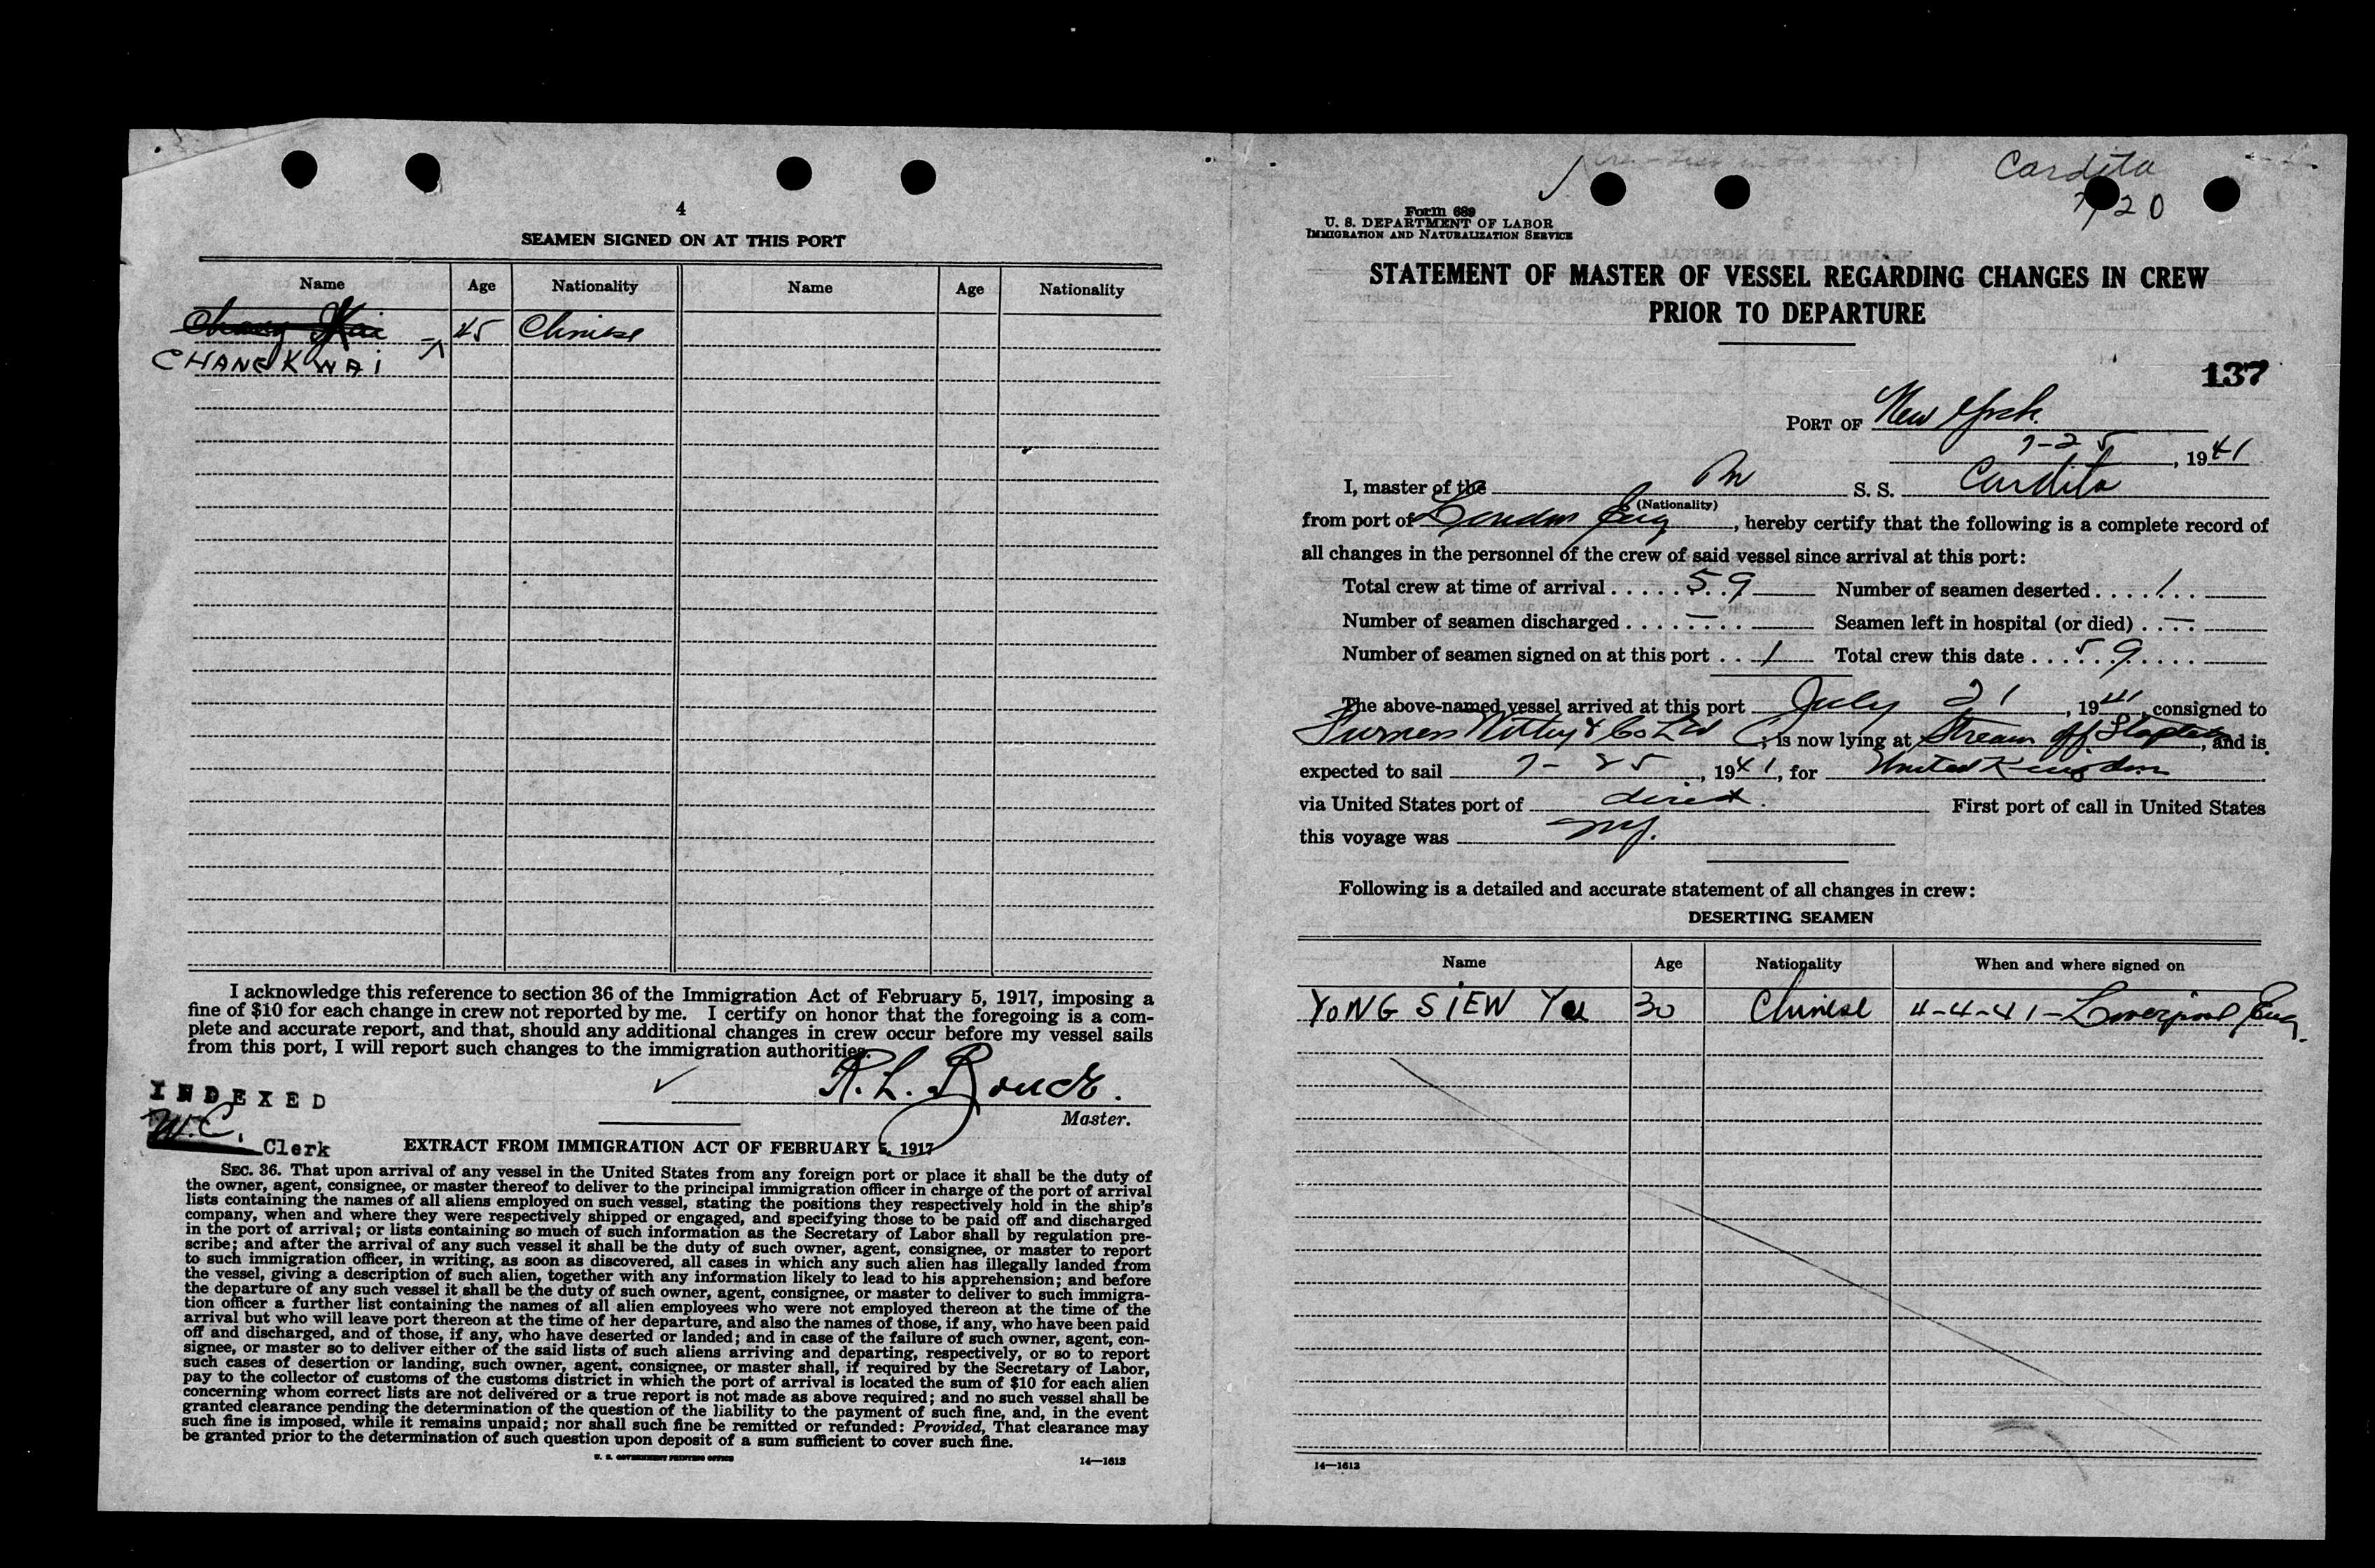 4
SEAMEN SIGNED ON AT THIS PORT
Name Age Nationality Name Age Nationality
45 Chinese
CHANG KWAI
I acknowledge this reference to section 36 of the Immigration Act of February 5, 1917, imposing a
fine of $10 for each change in crew not reported by me. I certify on honor that the foregoing is a com-
plete and accurate report, and that, should any additional changes in crew occur before my vessel sails
from this port, I will report such changes to the immigration authorities.
R. L.
Master.
INDEXED
W.C.
Clerk
EXTRACT FROM IMMIGRATION ACT OF FEBRUARY 5, 1917
SEC. 36. That upon arrival of any vessel in the United States from any foreign port or place it shall be the duty of
the owner, agent, consignee, or master thereof to deliver to the principal immigration officer in charge of the port of arrival
lists containing the names of all aliens employed on such vessel, stating the positions they respectively hold in the ship's
company, when and where they were respectively shipped or engaged, and specifying those to be paid off and discharged
in the port of arrival; or lists containing so much of such information as the Secretary of Labor shall by regulation pre-
scribe; and after the arrival of any such vessel it shall be the duty of such owner, agent, consignee, or master to report
to such immigration officer, in writing, as soon as discovered, all cases in which any such alien has illegally landed from
the vessel, giving a description of such alien, together with any information likely to lead to his apprehension; and before
the departure of any such vessel it shall be the duty of such owner, agent, consignee, or master to deliver to such immigra-
tion officer a further list containing the names of all alien employees who were not employed thereon at the time of the
arrival but who will leave port thereon at the time of her departure, and also the names of those, if any, who have been paid
off and discharged, and of those, if any, who have deserted or landed; and in case of the failure of such owner, agent, con-
signee, or master so to deliver either of the said lists of such aliens arriving and departing, respectively, or so to report
such cases of desertion or landing, such owner, agent, consignee, or master shall, if required by the Secretary of Labor,
pay to the collector of customs of the customs district in which the port of arrival is located the sum of $10 for each alien
concerning whom correct lists are not delivered or a true report is not made as above required; and no such vessel shall be
granted clearance pending the determination of the question of the liability to the payment of such fine, and, in the event
such fine is imposed, while it remains unpaid; nor shall such fine be remitted or refunded: Provided, That clearance may
be granted prior to the determination of such question upon deposit of a sum sufficient to cover such fine.
U. S. GOVERNMENT PRINTING OFFICE 14—1613
Cardita
7/20
Form 689
U. S. DEPARTMENT OF LABOR
IMMIGRATION AND NATURALIZATION SERVICE
STATEMENT OF MASTER OF VESSEL REGARDING CHANGES IN CREW
PRIOR TO DEPARTURE
137
PORT OF New York.
7-25, 1941
I, master of the S. S. Cardita
(Nationality)
from port of London Eng, hereby certify that the following is a complete record of
all changes in the personnel of the crew of said vessel since arrival at this port:
Total crew at time of arrival . . . . . 59 Number of seamen deserted . . . . 1 . .
Number of seamen discharged . . . . — . . . Seamen left in hospital (or died) . . — . .
Number of seamen signed on at this port . . 1 Total crew this date . . . . 59 . . . . .
The above-named vessel arrived at this port July 21, 1941, consigned to
Furness Withy & Co Ltd, is now lying at Stream off Stapleton, and is
expected to sail 7-25, 1941, for United Kingdom
via United States port of direct. First port of call in United States
this voyage was NY.
Following is a detailed and accurate statement of all changes in crew:
DESERTING SEAMEN
Name Age Nationality When and where signed on
YONG SIEW 30 Chinese 4-4-41-Liverpool Eng.
14—1613